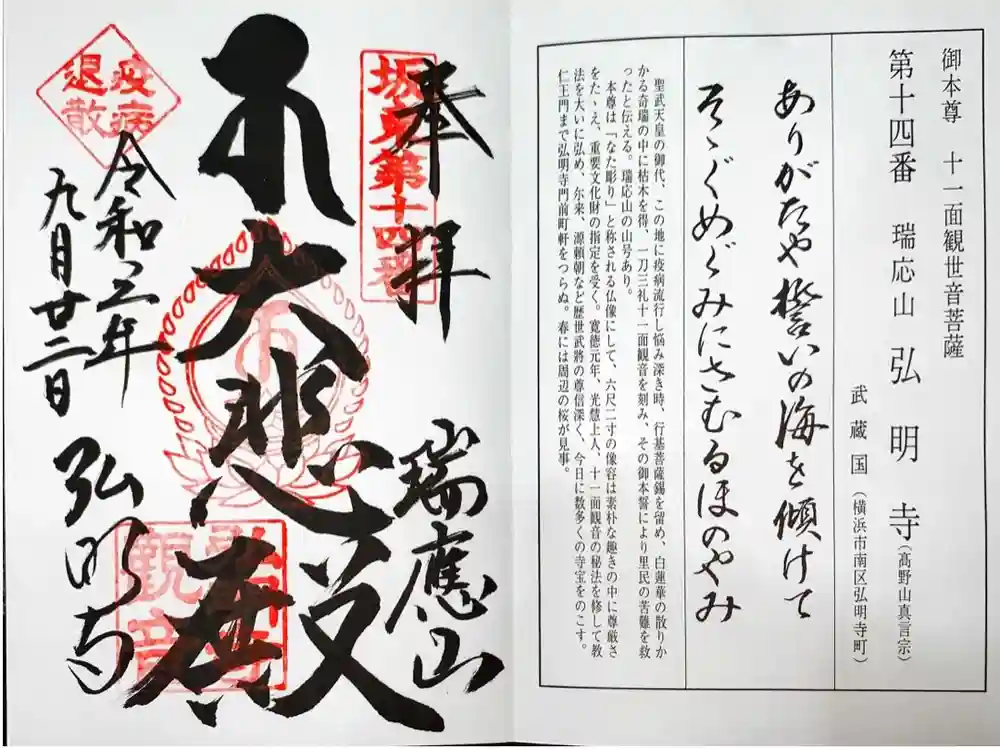 御本尊　十一面観世音菩薩
第十四番　瑞応山　弘明寺（高野山真言宗）
武蔵国（横浜市南区弘明寺町）
ありがたや誓いの海を傾けて
そゝぐめぐみにさむるほのやみ
聖武天皇の御代、この地に疫病流行し悩み深き時、行基菩薩錫を留め、白蓮華の散りか
かる奇瑞の中に枯木を得、一刀三礼十一面観音を刻み、その御本誓により里民の苦難を救
ったと伝える。瑞応山の山号あり。
本尊は「なた彫り」と称される仏像にして、六尺二寸の像容は素朴な趣きの中に尊厳さ
をたゝえ、重要文化財の指定を受く。寛徳元年、光慧上人、十一面観音の秘法を修して教
法を大いに弘め、尓来、源頼朝など歴世武將の尊信深く、今日に数多くの寺宝をのこす。
仁王門まで弘明寺門前町軒をつらぬ。春には周辺の桜が見事。
奉拝
坂東第十四番
瑞應山
大悲殿
疫病
退散
令和二年
九月廿二日
弘明寺
観音